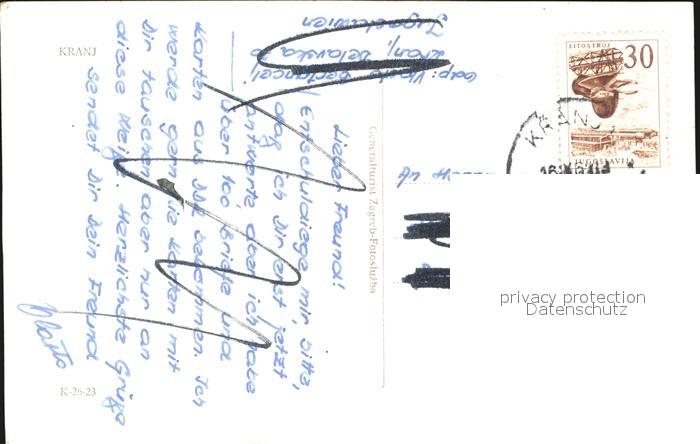 KRANJ
Lieber Freund!
Entschuldige mir, bitte,
daß ich dir erst jetzt
antworte, aber ich habe
über 100 Briefe und
Karten aus bekommen. Ich
werde gern die Karten mit
dir tauschen aber nur an
diese Weise. Herzlichste Grüße
sendet dir dein Freund
Vlasto
K-26-23
Generalturist Zagreb-Fotoslužba
Kranj,
Jugoslawien
LITOSTROJ
30
JUGOSLAVIJA
KRANJ
privacy protection
Datenschutz